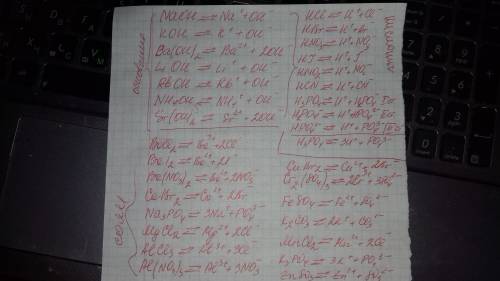 основания
NaOH ⇌ Na⁺ + OH⁻
KOH ⇌ K⁺ + OH⁻
Ba(OH)₂ ⇌ Ba²⁺ + 2OH⁻
LiOH ⇌ Li⁺ + OH⁻
RbOH ⇌ Rb⁺ + OH⁻
NH₄OH ⇌ NH₄⁺ + OH⁻
Sr(OH)₂ ⇌ Sr²⁺ + 2OH⁻
HCl ⇌ H⁺ + Cl⁻
HBr ⇌ H⁺ + Br⁻
HNO₃ ⇌ H⁺ + NO₃⁻
HJ ⇌ H⁺ + J⁻
HNO₂ ⇌ H⁺ + NO₂⁻
HCN ⇌ H⁺ + CN⁻
H₃PO₄ ⇌ H⁺ + H₂PO₄⁻
H₂PO₄⁻ ⇌ H⁺ + HPO₄²⁻
HPO₄²⁻ ⇌ H⁺ + PO₄³⁻
H₃PO₄ ⇌ 3H⁺ + PO₄³⁻
соли
BaCl₂ ⇌ Ba²⁺ + 2Cl⁻
BaI₂ ⇌ Ba²⁺ + 2I⁻
Ba(NO₃)₂ ⇌ Ba²⁺ + 2NO₃⁻
CaBr₂ ⇌ Ca²⁺ + 2Br⁻
Na₃PO₄ ⇌ 3Na⁺ + PO₄³⁻
MgCl₂ ⇌ Mg²⁺ + 2Cl⁻
AlCl₃ ⇌ Al³⁺ + 3Cl⁻
Al(NO₃)₃ ⇌ Al³⁺ + 3NO₃⁻
CuBr₂ ⇌ Cu²⁺ + 2Br⁻
Cr₂(SO₄)₃ ⇌ 2Cr³⁺ + 3SO₄²⁻
FeSO₄ ⇌ Fe²⁺ + SO₄²⁻
K₂CO₃ ⇌ 2K⁺ + CO₃²⁻
MnCl₂ ⇌ Mn²⁺ + 2Cl⁻
K₃PO₄ ⇌ 3K⁺ + PO₄³⁻
ZnSO₄ ⇌ Zn²⁺ + SO₄²⁻